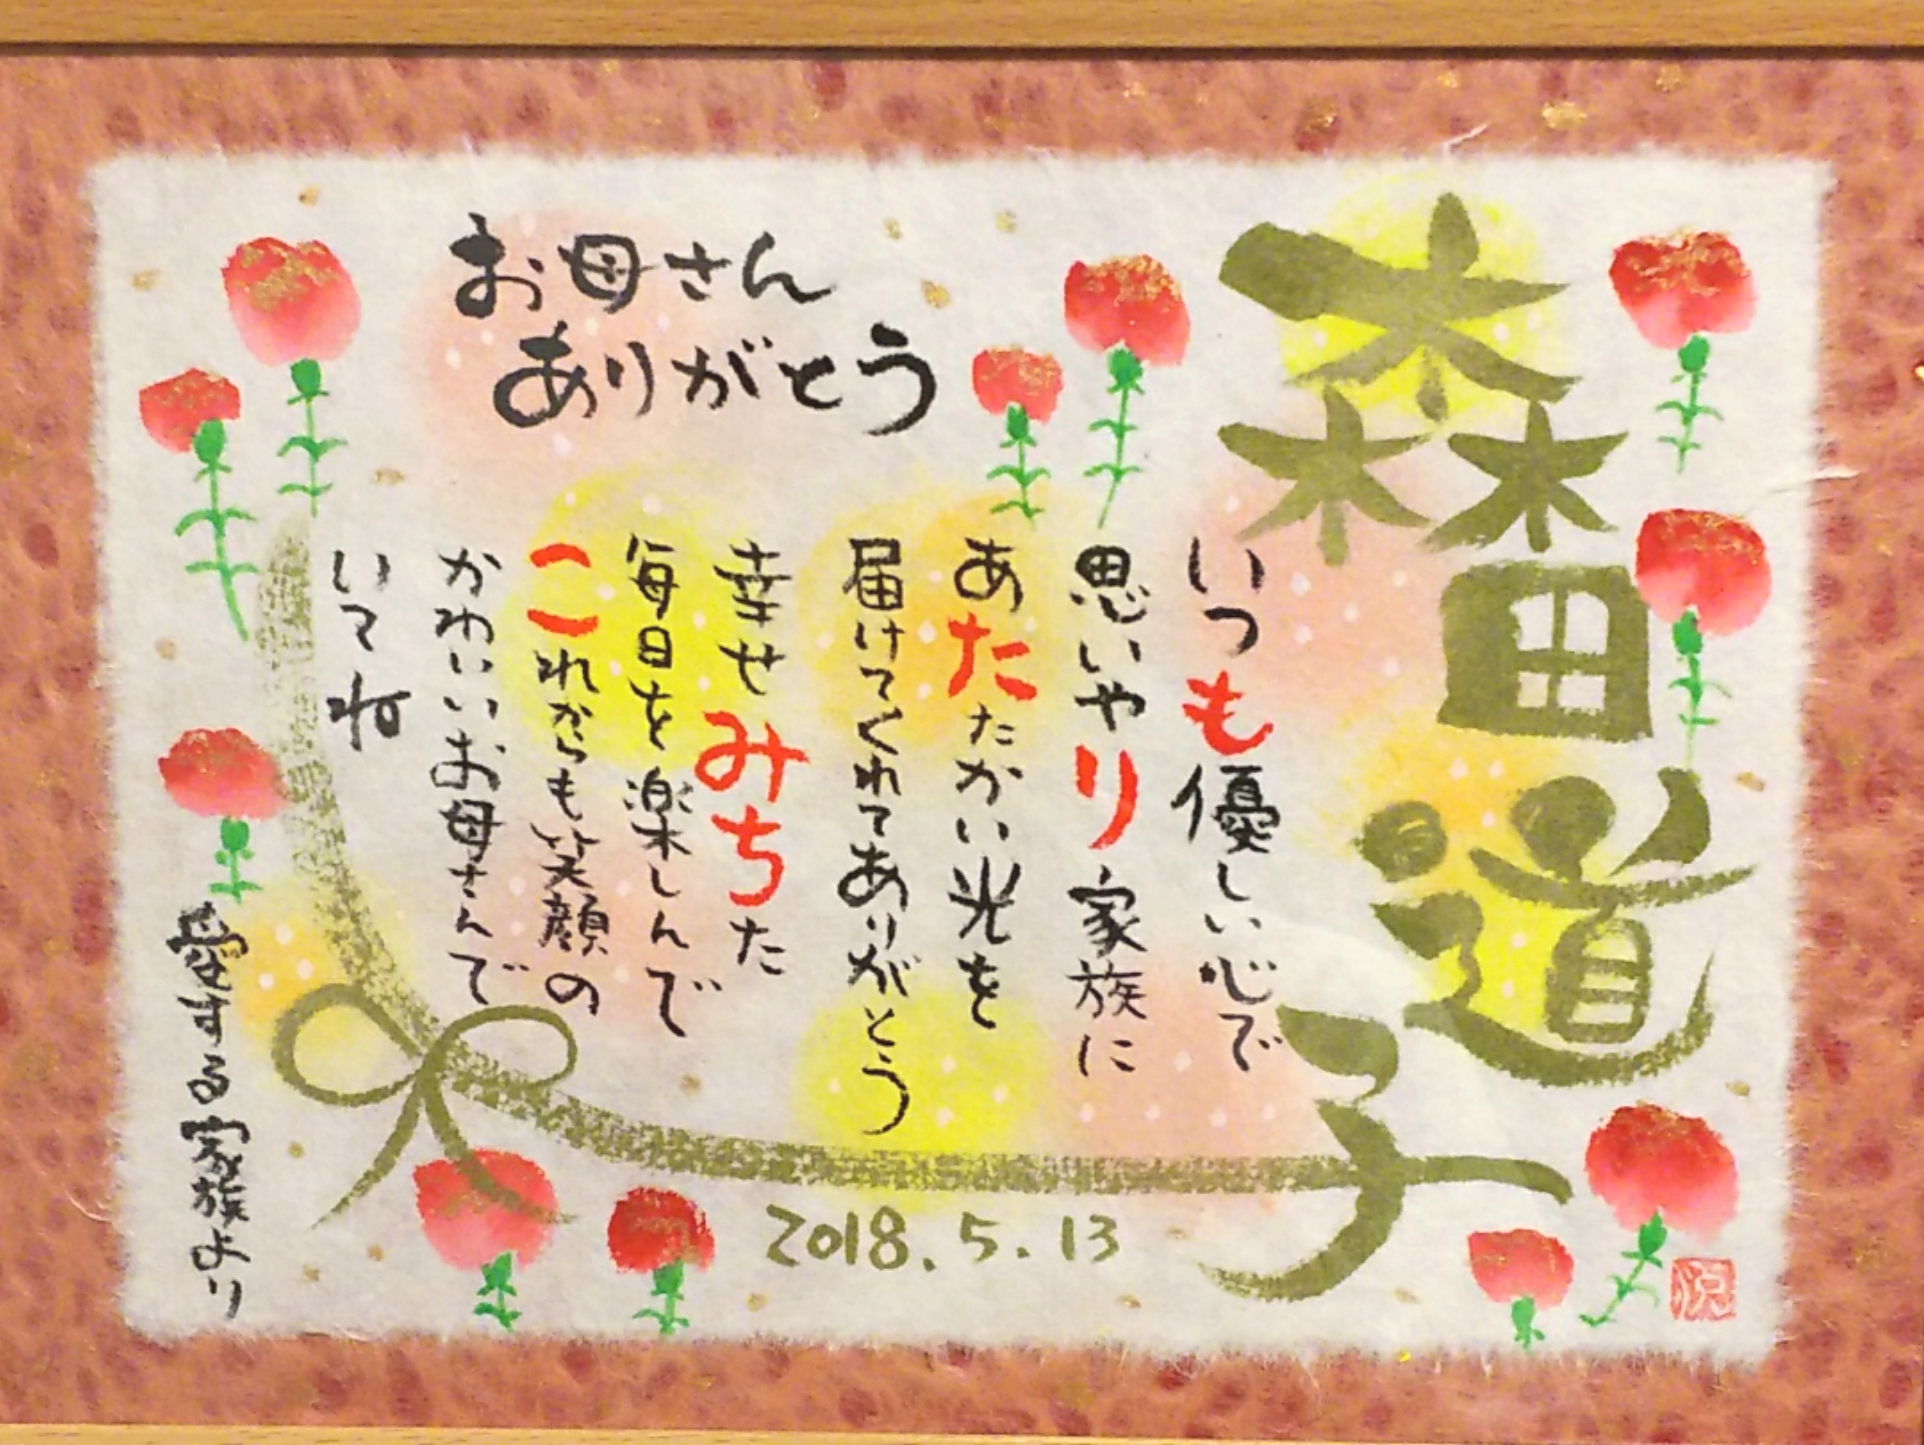 お母さん
ありがとう
森田道子
いつも優しい心で
思いやり家族に
あたたかい光を
届けてくれてありがとう
幸せみちた
毎日を楽しんで
これからも笑顔の
かわいいお母さんで
いてね
愛する家族より
2018.5.13